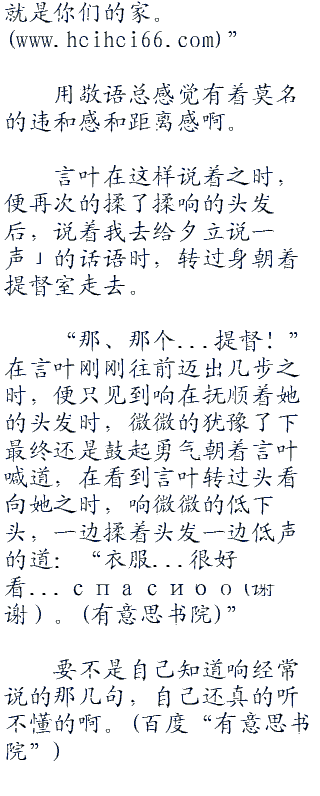 就是你们的家。
(www.hcihci66.com)”
用敬语总感觉有着莫名
的违和感和距离感啊。
言叶在这样说着之时，
便再次的揉了揉响的头发
后，说着我去给夕立说一
声」的话语时，转过身朝着
提督室走去。
“那、那个...提督！”
在言叶刚刚往前迈出几步之
时，便只见到响在抚顺着她
的头发时，微微的犹豫了下
最终还是鼓起勇气朝着言叶
喊道，在看到言叶转过头看
向她之时，响微微的低下
头，一边揉着头发一边低声
的道：“衣服...很好
看...спасибо(谢
谢）。(有意思书院)”
要不是自己知道响经常
说的那几句，自己还真的听
不懂的啊。(百度“有意思书
院”)